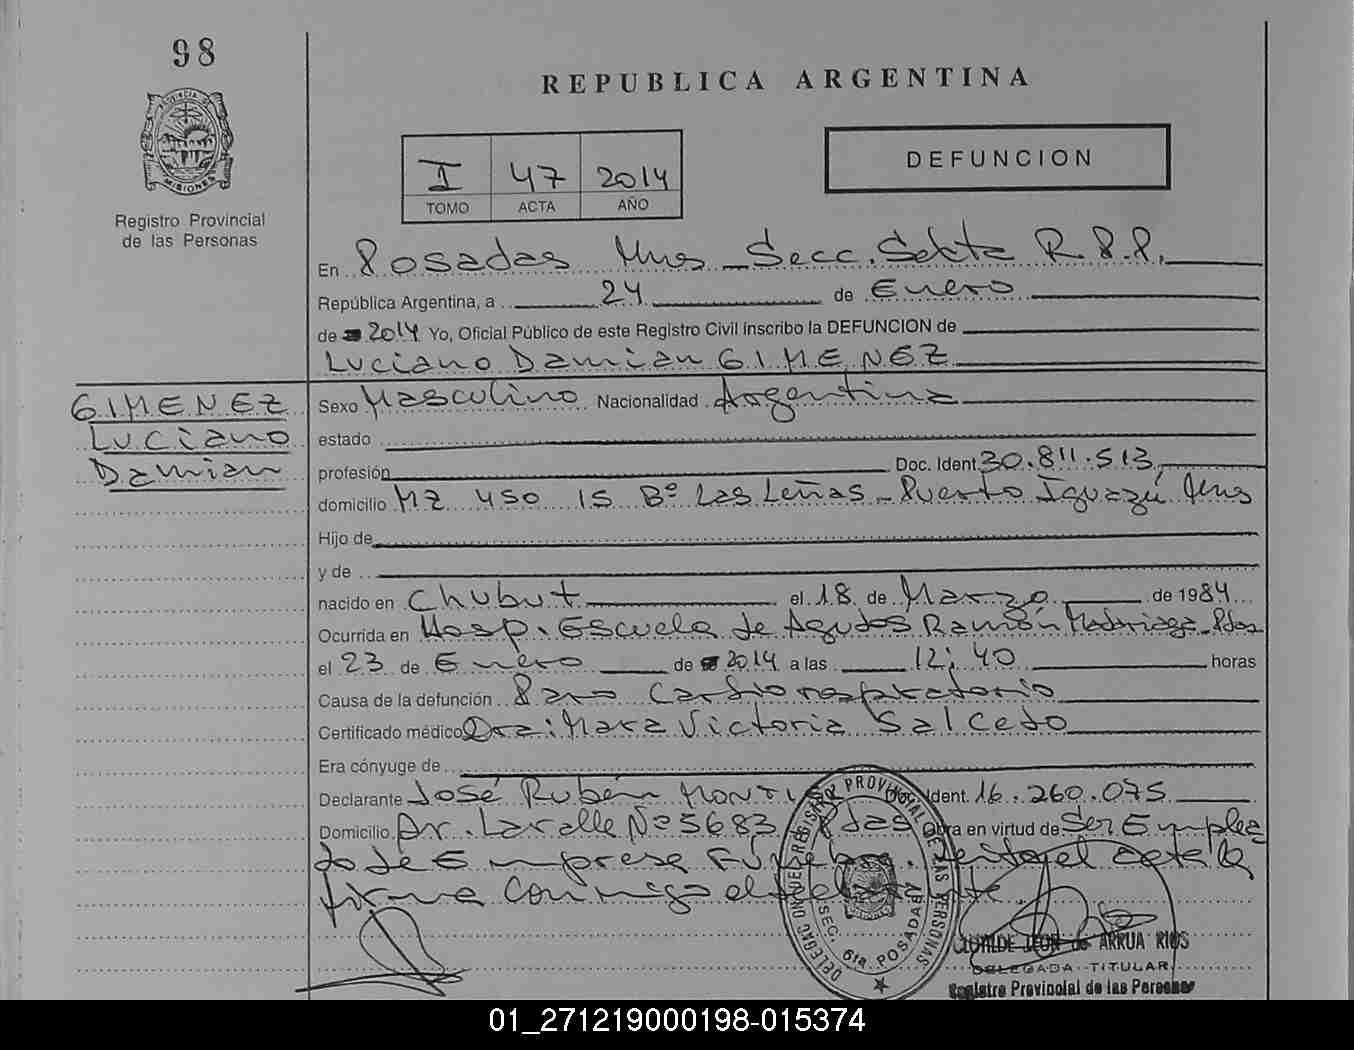 98
REPUBLICA ARGENTINA
PROVINCIA DE
MISIONES
Registro Provincial
de las Personas
I 47 2014
TOMO ACTA AÑO
DEFUNCION
En Posadas Mnes Secc. Sexta R.P.P.
República Argentina, a 24 de Enero
de 2014 Yo, Oficial Público de este Registro Civil inscribo la DEFUNCION de
Luciano Damian GIMENEZ
GIMENEZ
Luciano
Damian
Sexo Masculino Nacionalidad Argentina
estado
profesión Doc. Ident. 30.811.513
domicilio MZ 450 15 Bº Las Leñas - Puerto Iguazú Mns
Hijo de
y de
nacido en Chubut el 18 de Marzo de 1984
Ocurrida en Hosp. Escuela de Agudos Ramón Madariaga - Pdas
el 23 de Enero de 2014 a las 12:40 horas
Causa de la defunción Paro Cardiorespiratorio
Certificado médico Dra: Mara Victoria Salcedo
Era cónyuge de
Declarante José Rubén Doc. Ident. 16.260.075
Domicilio Av. Lavalle Nº 5683 Pdas Obra en virtud de Ser Emplea
do de Empresa Fúnebre. el acta la
firma conmigo el declarante.
DELEGAC REGISTRO PROVINCIAL DE LAS PERSONAS
SEC. 6ta POSADAS
CLOTILDE LEON de ARRUA RIOS
DELEGADA TITULAR
Registro Provincial de las Personas
01_271219000198-015374